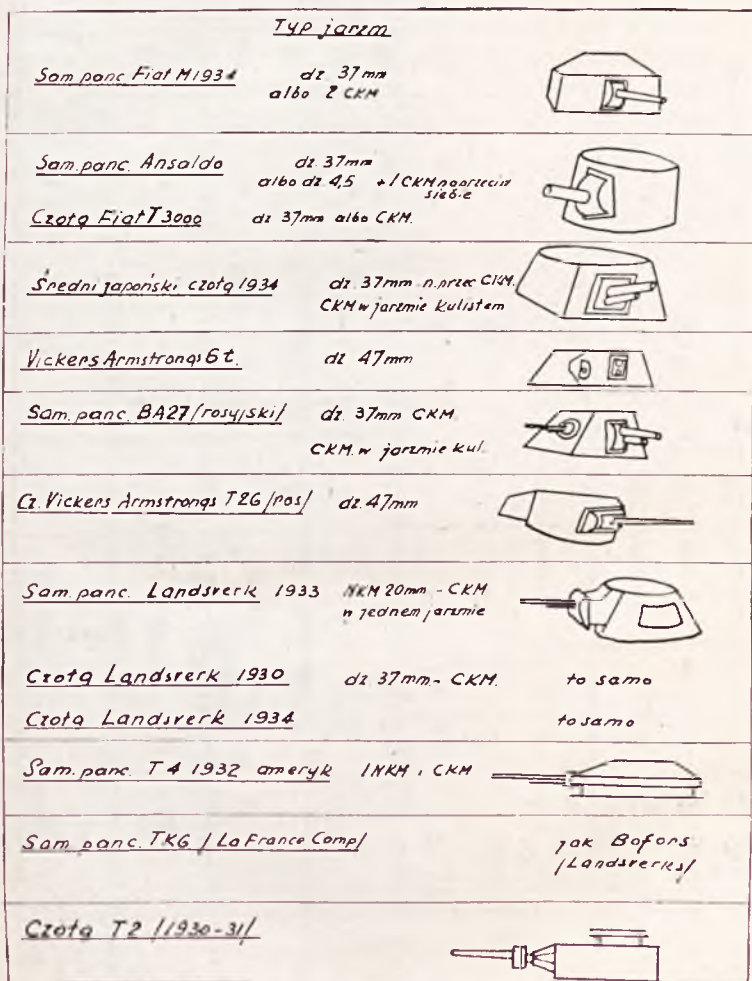 Typ jarzm
Sam panc Fiat M1934 dz 37mm
albo 2 CKM
Sam. panc. Ansaldo dz. 37mm
albo dz. 4,5 + 1 CKM naprzeciw
siebie
Czołg Fiat T3000 dz 37mm albo CKM.
Średni japoński czołg 1934 dz. 37mm n.przec CKM.
CKM w jarzmie kulistem
Vickers Armstrongs 6 t. dz 47mm
Sam. panc. BA27 /rosyjski/ dz. 37mm CKM
CKM. w jarzmie kul.
Cz. Vickers Armstrongs T26 /ros/ dz. 47mm
Sam. panc. Landsverk 1933 NKM 20mm - CKM
w jednem jarzmie
Czołg Landsverk 1930 dz 37mm - CKM. to samo
Czołg Landsverk 1934 to samo
Sam. panc. T4 1932 ameryk 1 NKM i CKM
Sam panc. TK6 / La France Comp/ jak Bofors
/Landsverks/
Czołg T2 /1930-31/